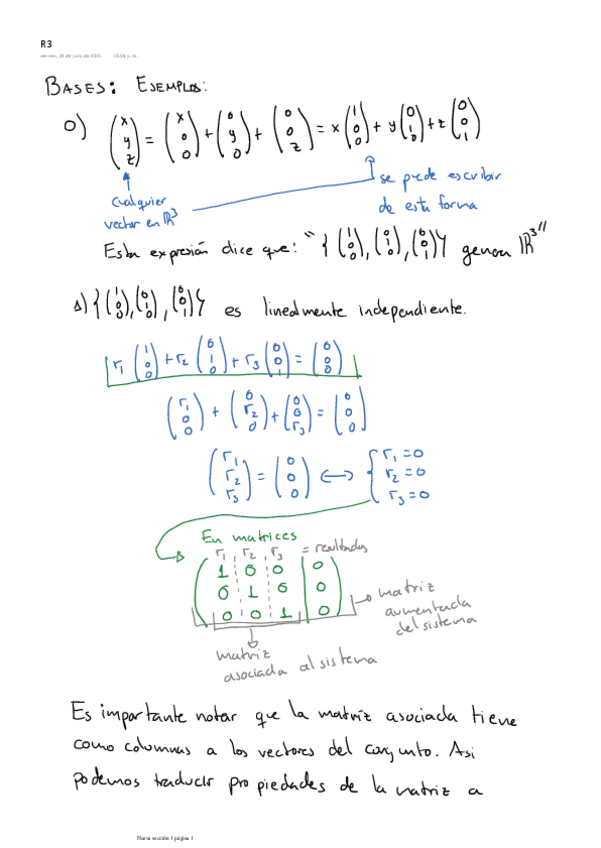 R3
viernes, 23 de julio de 2021 12:54 p. m.
BASES: EJEMPLOS:
0) (x y z) = (x 0 0) + (0 y 0) + (0 0 z) = x (1 0 0) + y (0 1 0) + z (0 0 1)
cualquier
vector en ℝ³
se puede escribir
de esta forma
Esta expresión dice que: "{ (1 0 0), (0 1 0), (0 0 1) } genera ℝ³"
1) { (1 0 0), (0 1 0), (0 0 1) } es linealmente independiente.
r₁ (1 0 0) + r₂ (0 1 0) + r₃ (0 0 1) = (0 0 0)
(r₁ 0 0) + (0 r₂ 0) + (0 0 r₃) = (0 0 0)
(r₁ r₂ r₃) = (0 0 0) ⟷ { r₁ = 0
r₂ = 0
r₃ = 0
En matrices
r₁, r₂, r₃ = resultados
1 0 0 | 0
0 1 0 | 0
0 0 1 | 0
matriz
aumentada
del sistema
matriz
asociada al sistema
Es importante notar que la matriz asociada tiene
como columnas a los vectores del conjunto. Asi
podemos traducir propiedades de la matriz a
Nueva sección 1 página 1